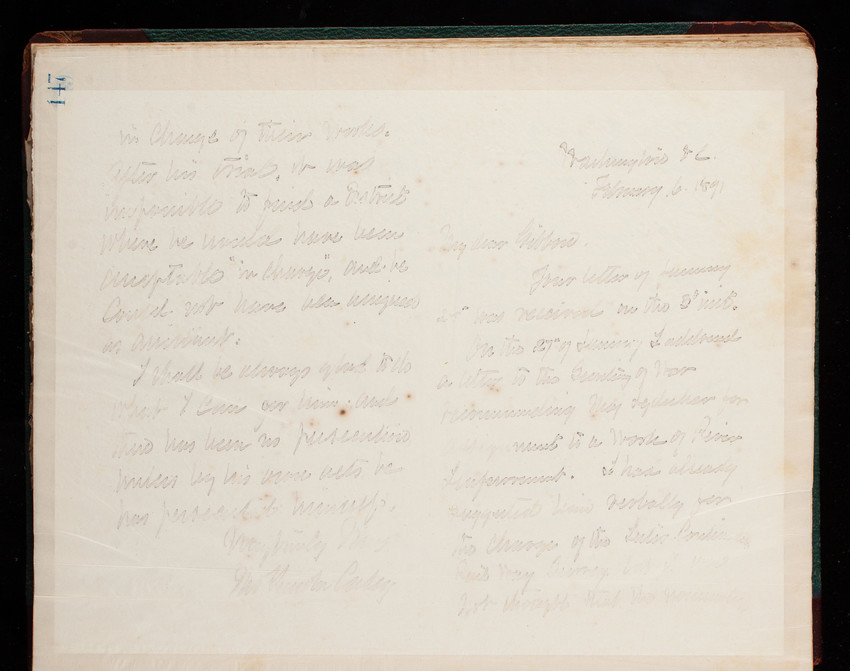 147
in charge of their works.
After his trial, it was
impossible to find a District
where he would have been
acceptable "in charge", and he
could not have been assigned
as assistant.
I shall be always glad to do
what I can for him and
there has been no persecution
unless by his own acts he
has persecuted himself.
Very truly Yours
Thos Lincoln Casey
Washington D.C.
February 6. 1891
My dear
Your letter of January
was received on the 3d inst.
On the 27" of January I addressed
a letter to the Secretary of War
recommending for
to a Work of River
Improvement. I had already
suggested him verbally for
the charge of the
Rail Way Survey
not that the